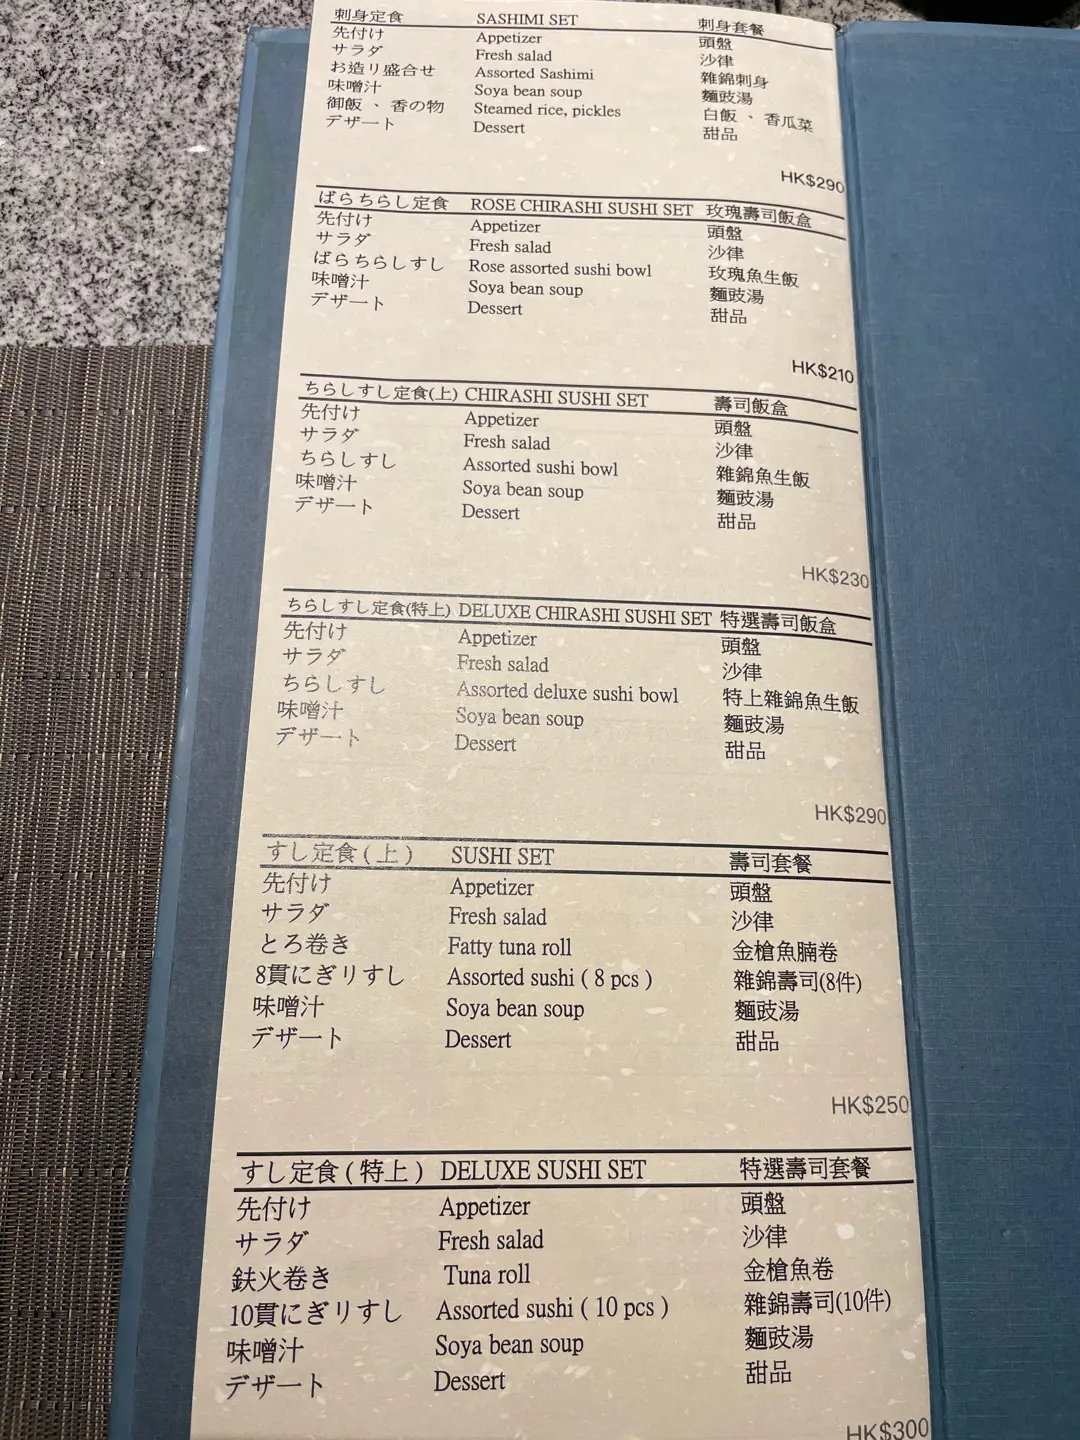 刺身定食 SASHIMI SET 刺身套餐
先付け Appetizer 頭盤
サラダ Fresh salad 沙律
お造り盛合せ Assorted Sashimi 雜錦刺身
味噌汁 Soya bean soup 麵豉湯
御飯 、 香の物 Steamed rice, pickles 白飯 、 香瓜菜
デザート Dessert 甜品
HK$290
ばらちらし定食 ROSE CHIRASHI SUSHI SET 玫瑰壽司飯盒
先付け Appetizer 頭盤
サラダ Fresh salad 沙律
ばらちらしすし Rose assorted sushi bowl 玫瑰魚生飯
味噌汁 Soya bean soup 麵豉湯
デザート Dessert 甜品
HK$210
ちらしすし定食(上) CHIRASHI SUSHI SET 壽司飯盒
先付け Appetizer 頭盤
サラダ Fresh salad 沙律
ちらしすし Assorted sushi bowl 雜錦魚生飯
味噌汁 Soya bean soup 麵豉湯
デザート Dessert 甜品
HK$230
ちらしすし定食(特上) DELUXE CHIRASHI SUSHI SET 特選壽司飯盒
先付け Appetizer 頭盤
サラダ Fresh salad 沙律
ちらしすし Assorted deluxe sushi bowl 特上雜錦魚生飯
味噌汁 Soya bean soup 麵豉湯
デザート Dessert 甜品
HK$290
すし定食 ( 上 ) SUSHI SET 壽司套餐
先付け Appetizer 頭盤
サラダ Fresh salad 沙律
とろ巻き Fatty tuna roll 金槍魚腩卷
8貫にぎりすし Assorted sushi ( 8 pcs ) 雜錦壽司(8件)
味噌汁 Soya bean soup 麵豉湯
デザート Dessert 甜品
HK$250
すし定食 ( 特上 ) DELUXE SUSHI SET 特選壽司套餐
先付け Appetizer 頭盤
サラダ Fresh salad 沙律
鉄火巻き Tuna roll 金槍魚卷
10貫にぎりすし Assorted sushi ( 10 pcs ) 雜錦壽司(10件)
味噌汁 Soya bean soup 麵豉湯
デザート Dessert 甜品
HK$300